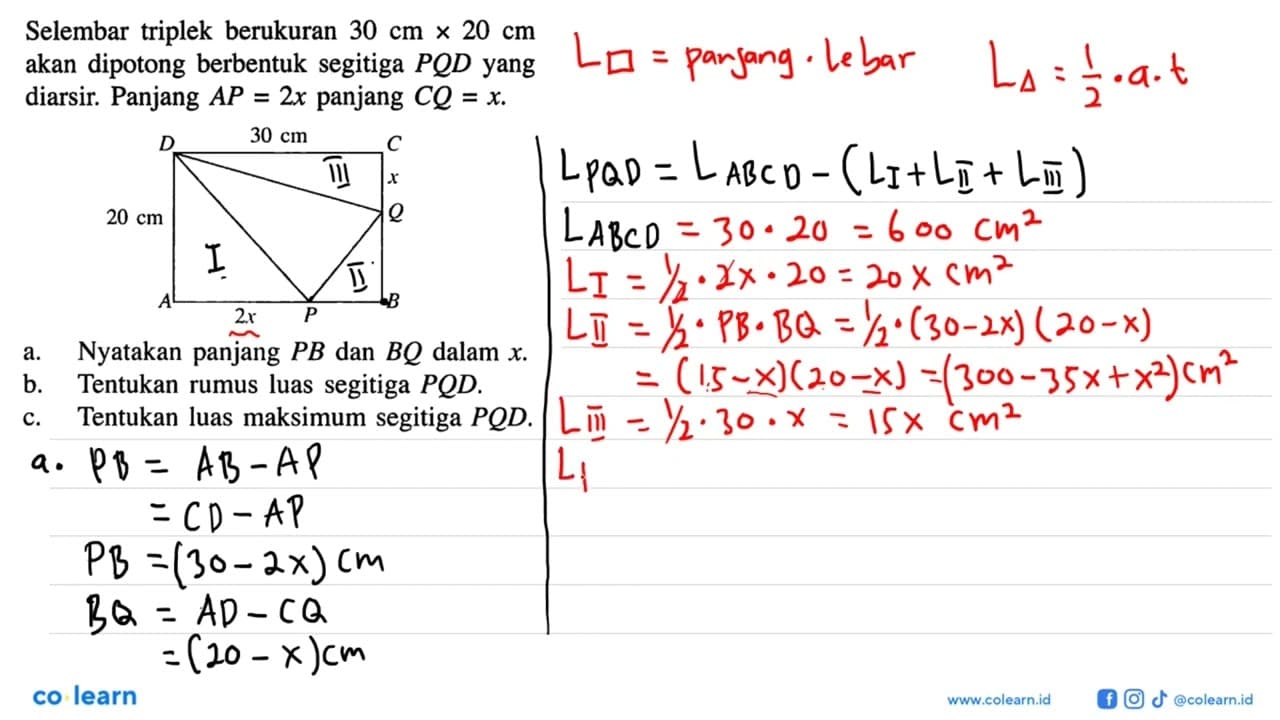 Selembar triplek berukuran 30 cm × 20 cm
akan dipotong berbentuk segitiga PQD yang
diarsir. Panjang AP = 2x panjang CQ = x.
L□ = panjang · lebar
L△ = 1/2 · a · t
D 30 cm C
III x
20 cm Q
I II
A 2x P B
a. Nyatakan panjang PB dan BQ dalam x.
b. Tentukan rumus luas segitiga PQD.
c. Tentukan luas maksimum segitiga PQD.
a. PB = AB - AP
= CD - AP
PB = (30 - 2x) cm
BQ = AD - CQ
= (20 - x) cm
L PQD = L ABCD - (L I + L II + L III)
L ABCD = 30 · 20 = 600 cm²
L I = 1/2 · 2x · 20 = 20x cm²
L II = 1/2 · PB · BQ = 1/2 · (30-2x)(20-x)
= (15-x)(20-x) = (300-35x+x²) cm²
L III = 1/2 · 30 · x = 15x cm²
L
co learn
www.colearn.id @colearn.id